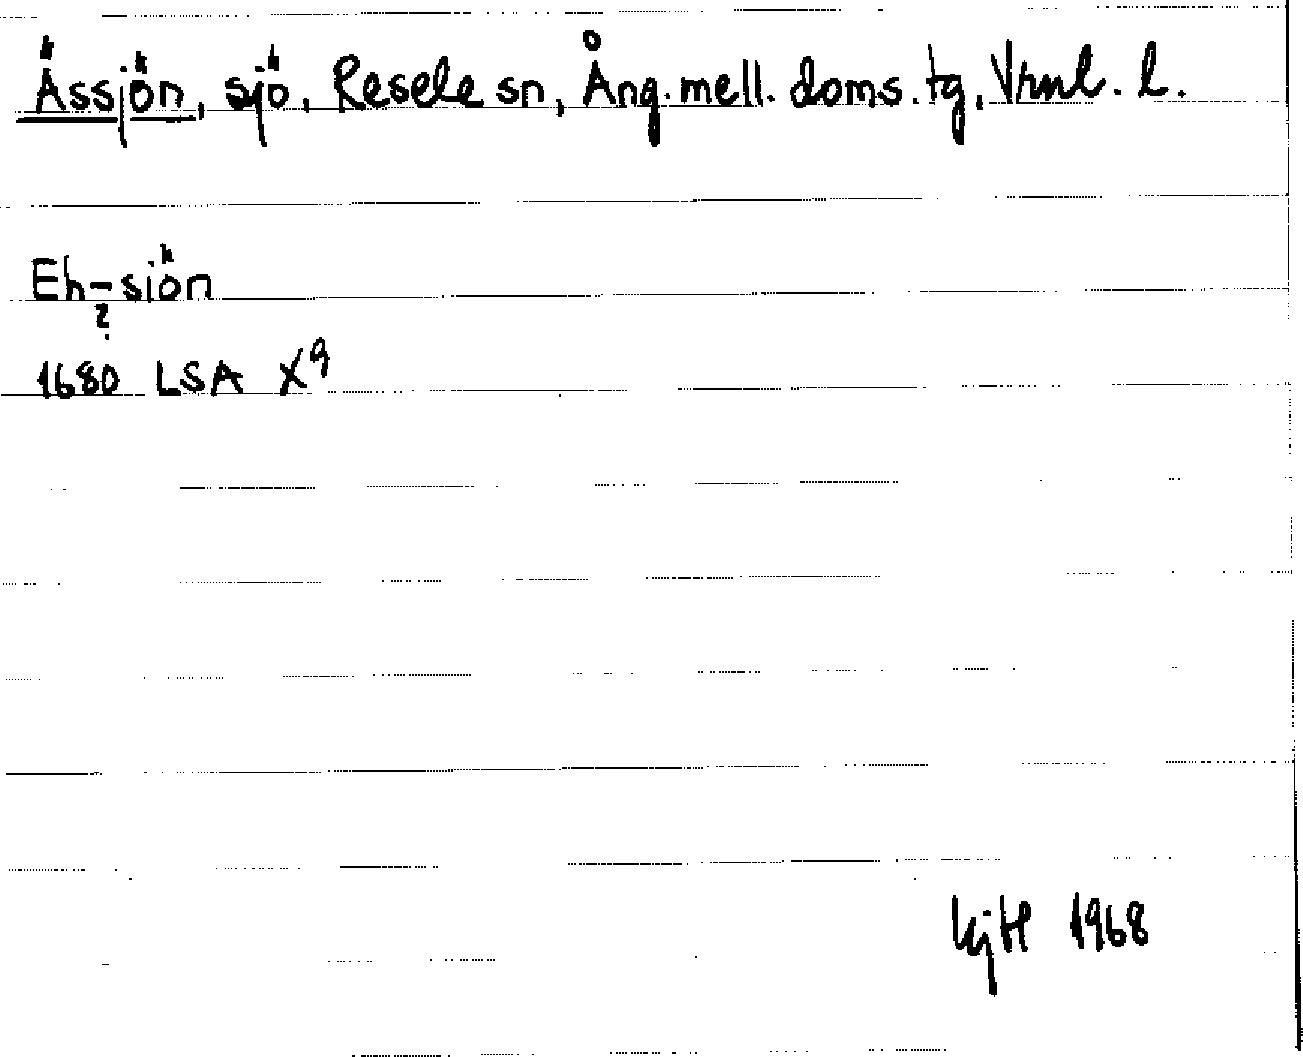 Ässjön, sjö, Resele sn, Ång. mell. doms. tg, Vrnl. l.
Eh-siön
?
1680 LSA X9
KjH 1968